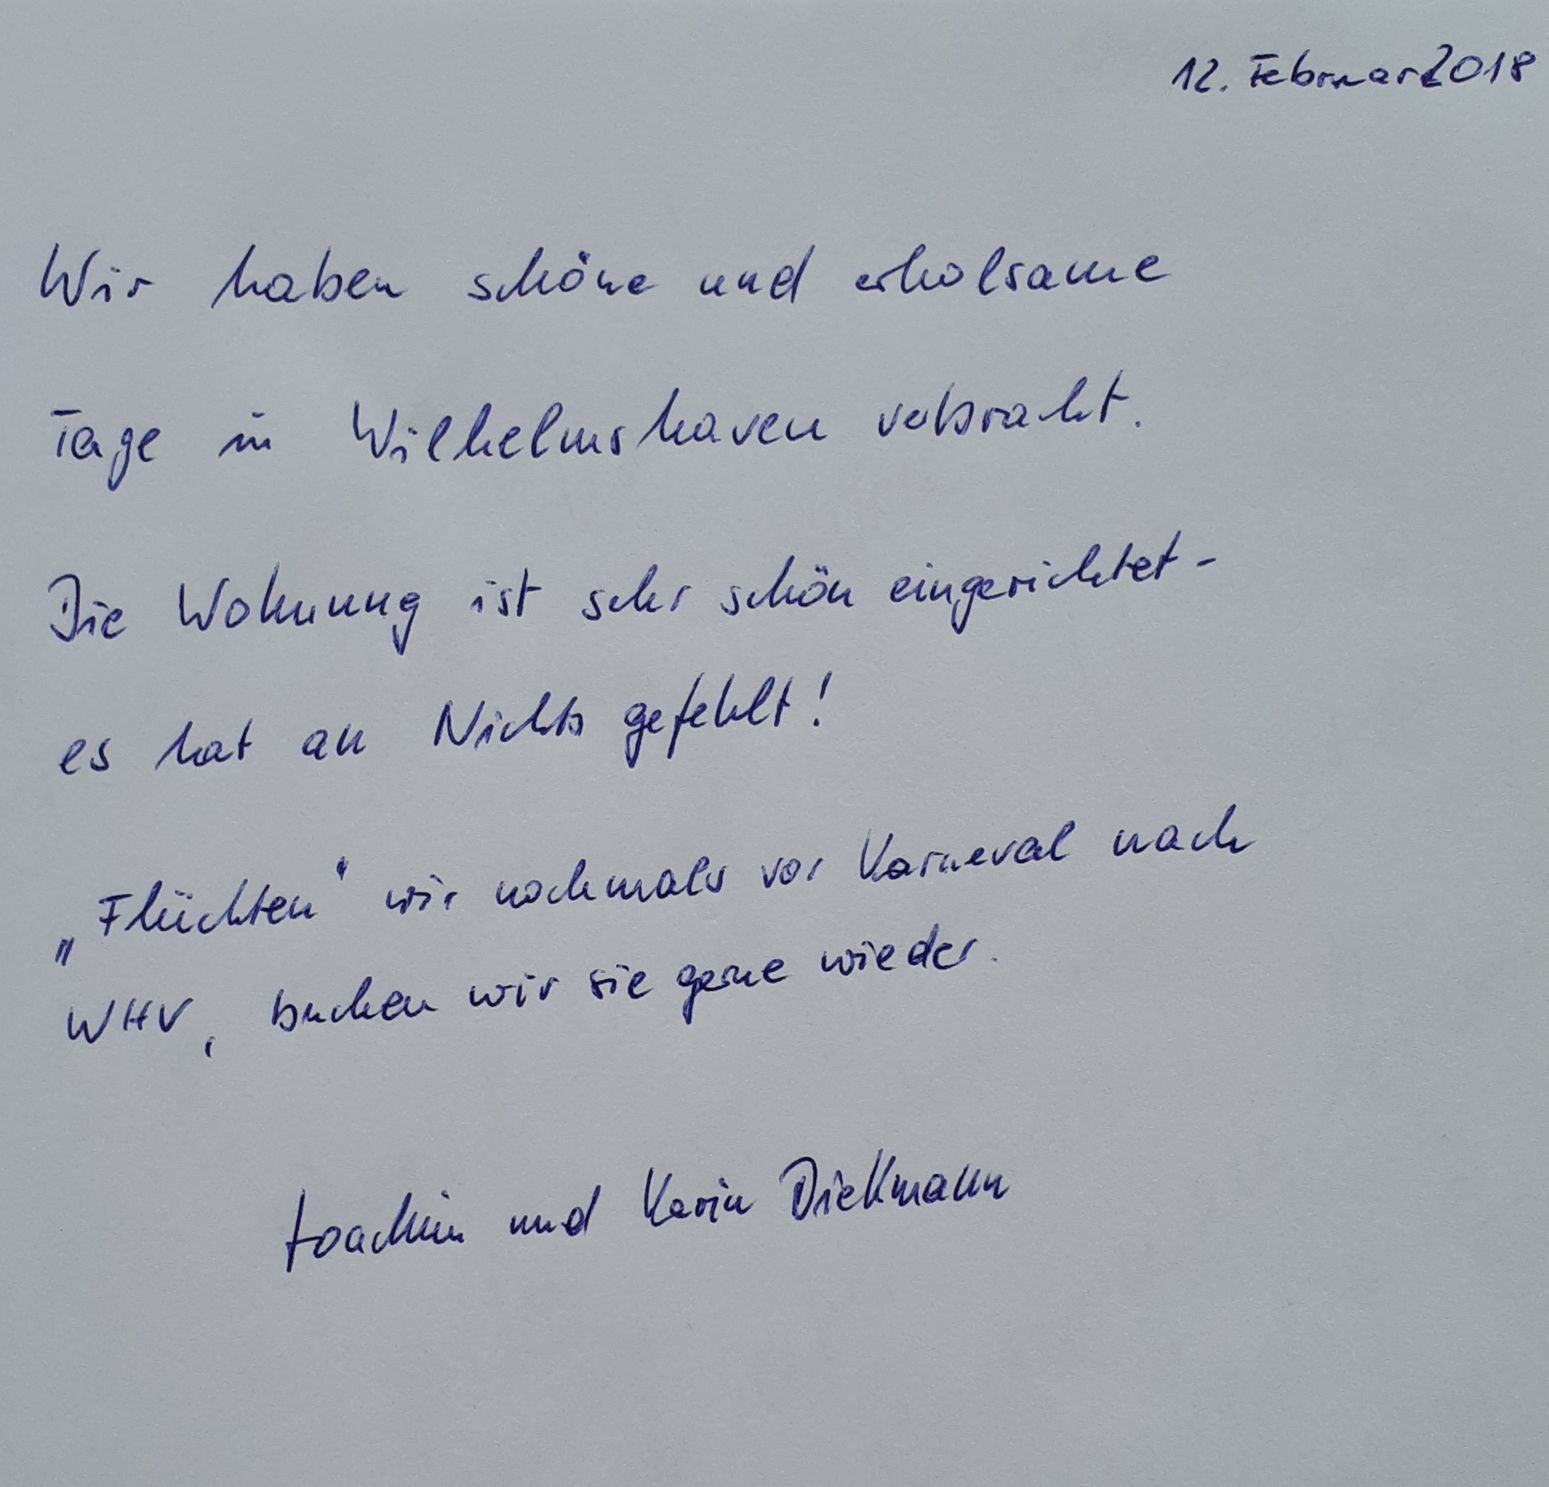 12. Februar 2018
Wir haben schöne und erholsame
Tage in Wilhelmshaven verbracht.
Die Wohnung ist sehr schön eingerichtet -
es hat an Nichts gefehlt!
„Flüchten" wir nochmals vor Karneval nach
WHV, buchen wir sie gerne wieder.
Joachim und Karin Diekmann